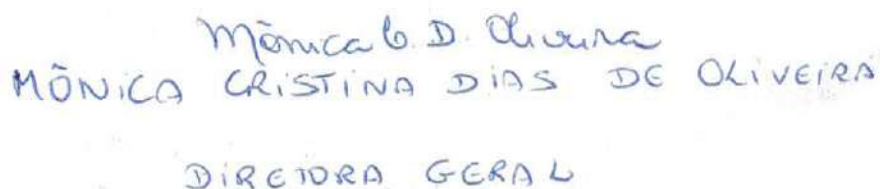 Mônica C. D. Oliveira
MÔNICA CRISTINA DIAS DE OLIVEIRA
DIRETORA GERAL